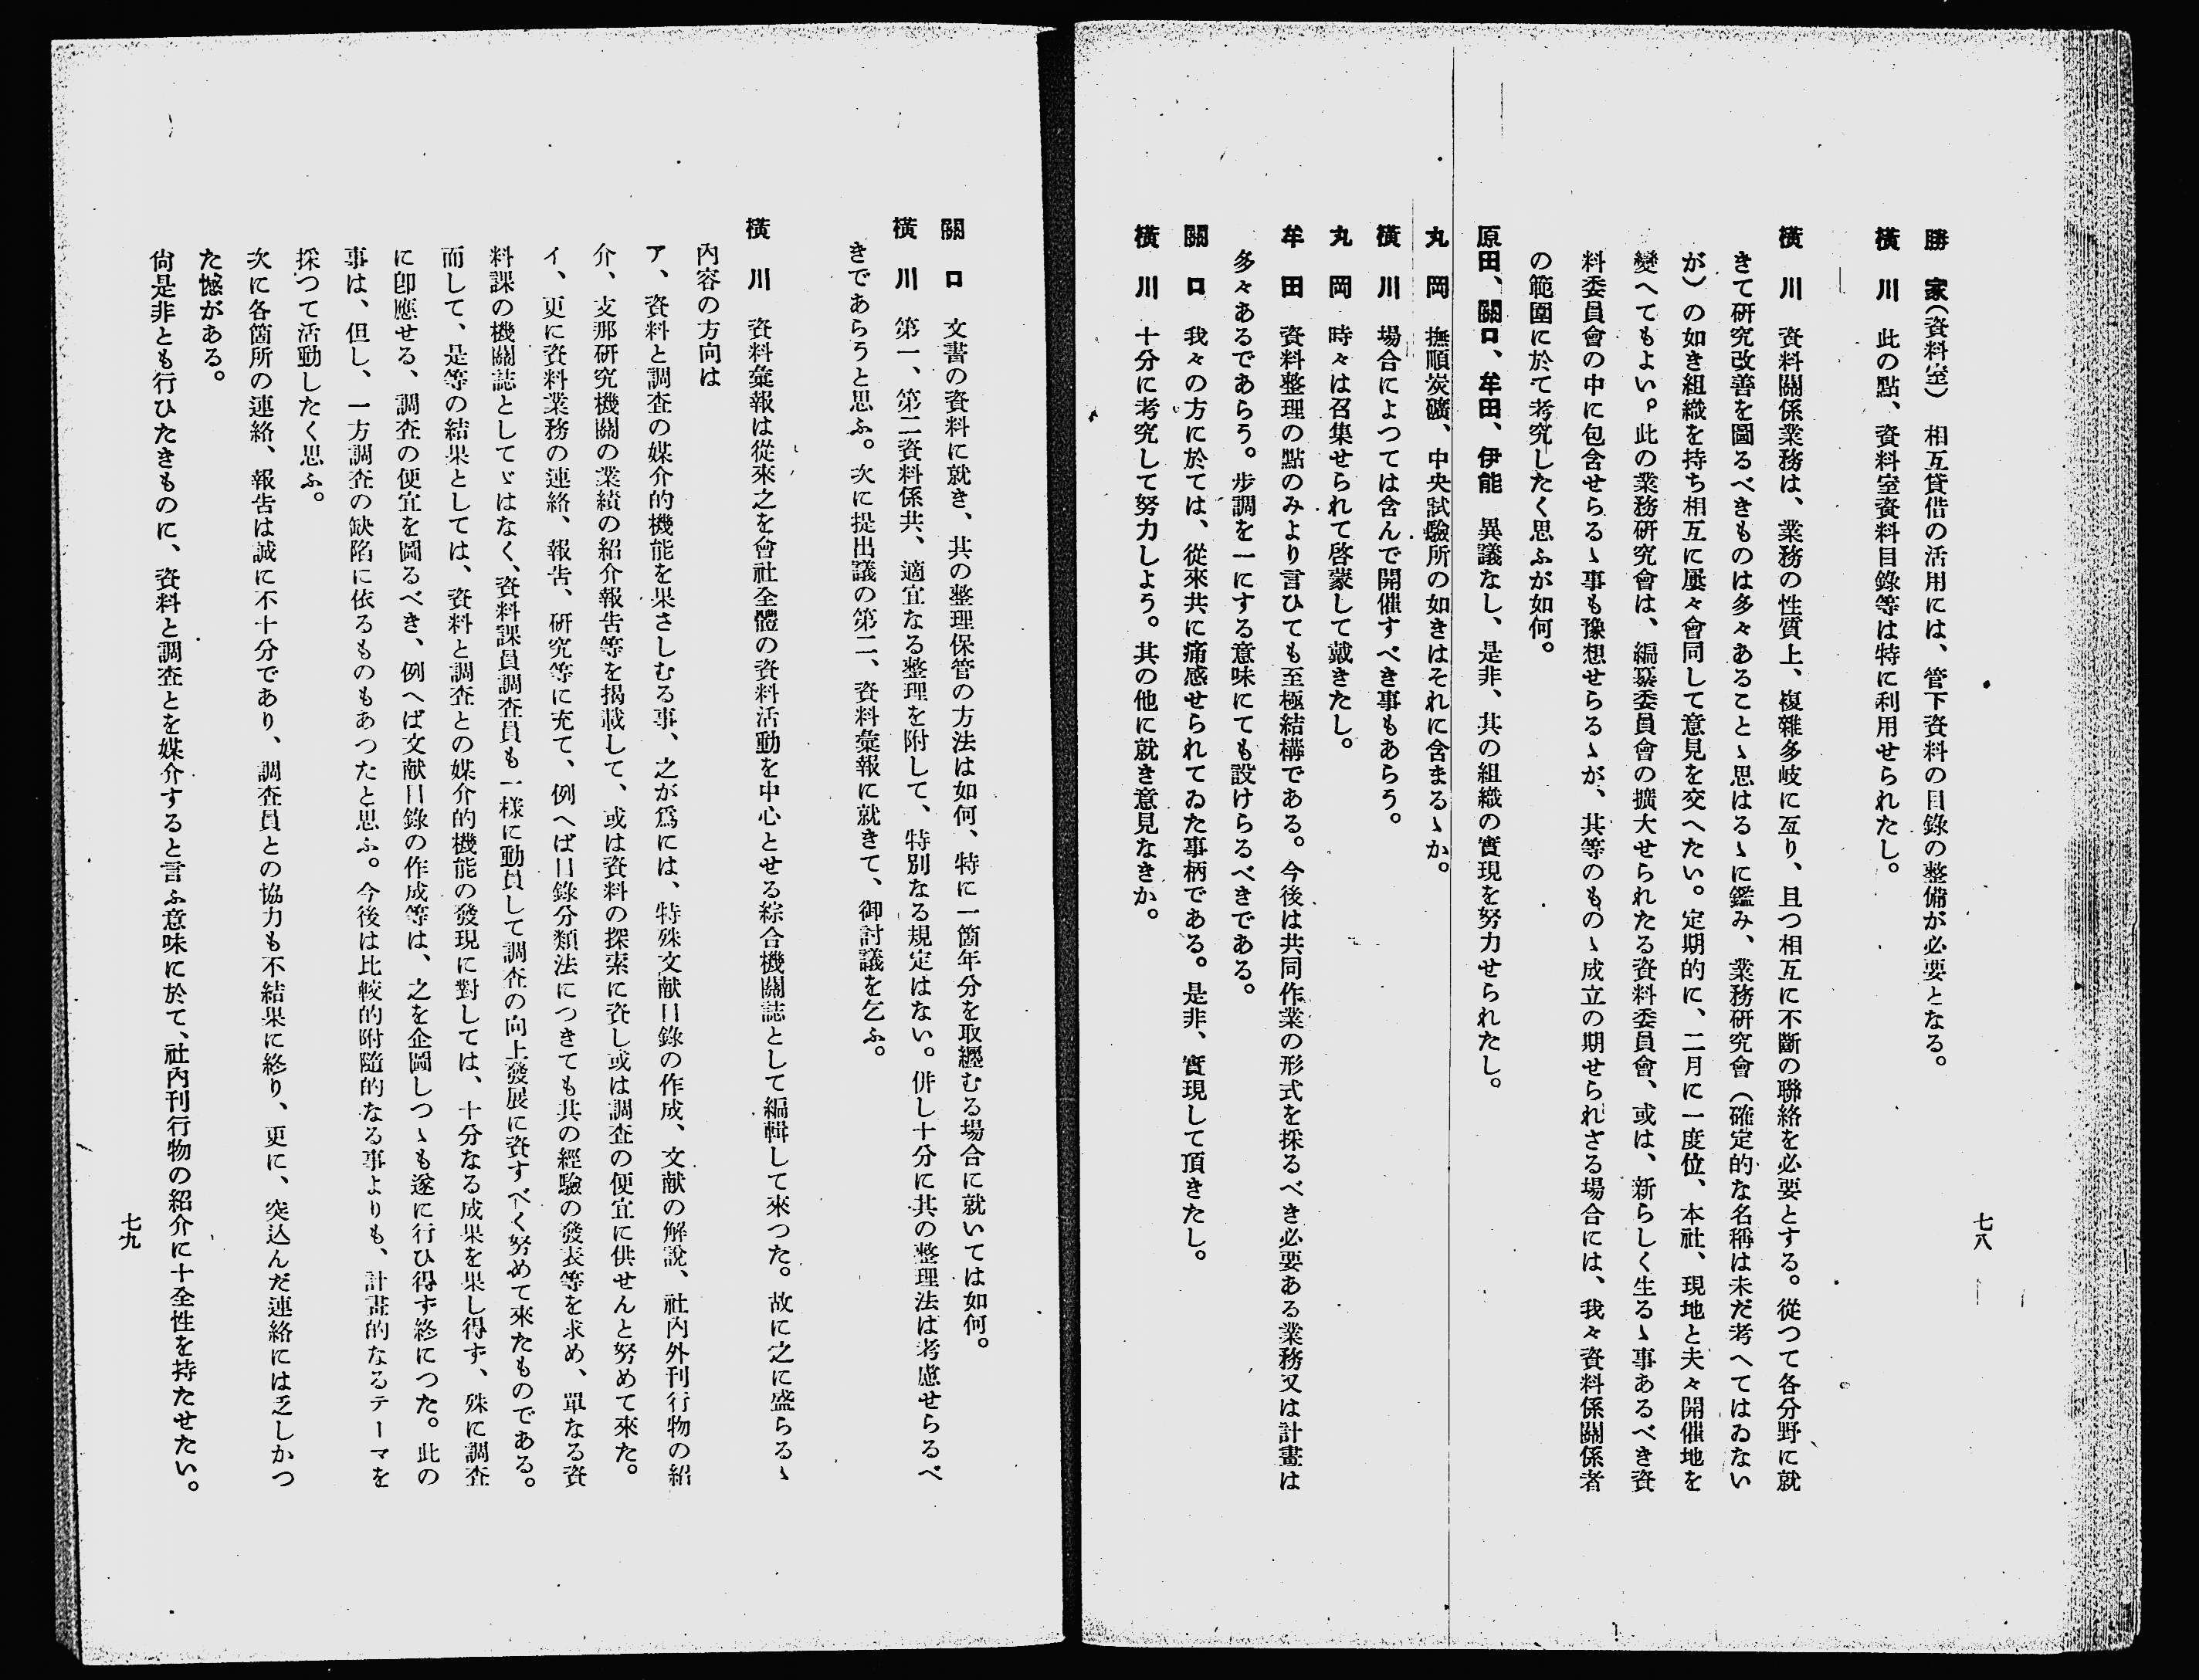 七八
勝　家(資料室)　相互貸借の活用には、管下資料の目錄の整備が必要となる。
橫　川　此の點、資料室資料目錄等は特に利用せられたし。
橫　川　資料關係業務は、業務の性質上、複雜多岐に亙り、且つ相互に不斷の聯絡を必要とする。從つて各分野に就
きて硏究改善を圖るべきものは多々あることゝ思はるゝに鑑み、業務硏究會（確定的な名稱は未だ考へてはゐない
が）の如き組織を持ち相互に屢々會同して意見を交へたい。定期的に、二月に一度位、本社、現地と夫々開催地を
變へてもよい。此の業務硏究會は、編纂委員會の擴大せられたる資料委員會、或は、新らしく生るゝ事あるべき資
料委員會の中に包含せらるゝ事も豫想せらるゝが、其等のものゝ成立の期せられざる場合には、我々資料係關係者
の範圍に於て考究したく思ふが如何。
原田、關口、牟田、伊能　異議なし、是非、其の組織の實現を努力せられたし。
丸　岡　撫順炭礦、中央試驗所の如きはそれに含まるゝか。
橫　川　場合によつては含んで開催すべき事もあらう。
丸　岡　時々は召集せられて啓蒙して戴きたし。
牟　田　資料整理の點のみより言ひても至極結構である。今後は共同作業の形式を採るべき必要ある業務又は計畫は
多々あるであらう。步調を一にする意味にても設けらるべきである。
關　口　我々の方に於ては、從來共に痛感せられてゐた事柄である。是非、實現して頂きたし。
橫　川　十分に考究して努力しよう。其の他に就き意見なきか。
關　口　文書の資料に就き、其の整理保管の方法は如何、特に一箇年分を取纒むる場合に就いては如何。
橫　川　第一、第二資料係共、適宜なる整理を附して、特別なる規定はない。併し十分に其の整理法は考慮せらるべ
きであらうと思ふ。次に提出議の第二、資料彙報に就きて、御討議を乞ふ。
橫　川　資料彙報は從來之を會社全體の資料活動を中心とせる綜合機關誌として編輯して來つた。故に之に盛らるゝ
內容の方向は
ア、資料と調査の媒介的機能を果さしむる事、之が爲には、特殊文献目錄の作成、文献の解說、社內外刊行物の紹
介、支那硏究機關の業績の紹介報吿等を揭載して、或は資料の探索に資し或は調査の便宜に供せんと努めて來た。
イ、更に資料業務の連絡、報吿、硏究等に充て、例へば目錄分類法につきても其の經驗の發表等を求め、單なる資
料課の機關誌としてゞはなく、資料課員調査員も一樣に動員して調査の向上發展に資すべく努めて來たものである。
而して、是等の結果としては、資料と調査との媒介的機能の發現に對しては、十分なる成果を果し得ず、殊に調査
に卽應せる、調査の便宜を圖るべき、例へば文献目錄の作成等は、之を企圖しつゝも遂に行ひ得ず終につた。此の
事は、但し、一方調査の缺陷に依るものもあつたと思ふ。今後は比較的附隨的なる事よりも、計畫的なるテーマを
採つて活動したく思ふ。
次に各箇所の連絡、報吿は誠に不十分であり、調査員との協力も不結果に終り、更に、突込んだ連絡には乏しかつ
た憾がある。
尙是非とも行ひたきものに、資料と調査とを媒介すると言ふ意味に於て、社內刊行物の紹介に十全性を持たせたい。
七九